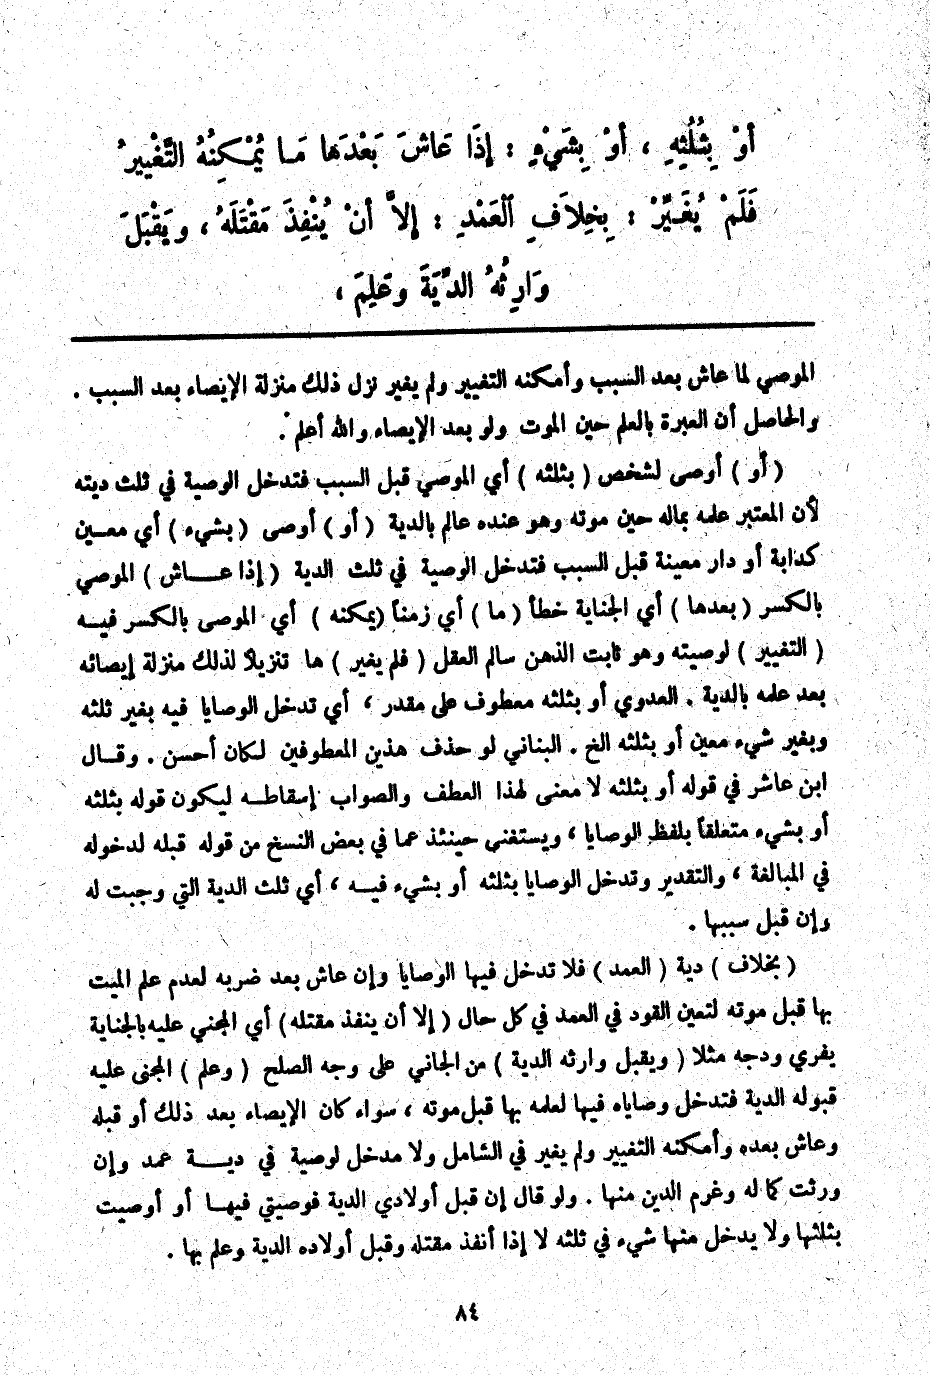 أَوْ بِثُلُثِهِ ، أَوْ بِشَيْءٍ : إِذَا عَاشَ بَعْدَهَا مَـا يُمْـكِنُهُ التَّغْيِيرُ
فَلَمْ يُغَـيِّرْ : بِخِلاَفِ ٱلْعَمْدِ : إِلاَّ أَنْ يُنْفِذَ مَقْتَلَهُ ، وَيَقْبَلَ
وَارِثُهُ الدِّيَةَ وَعَلِمَ ،
الموصي لما عاش بعد السبب وأمكنه التغيير ولم يغير نزل ذلك منزلة الإيصاء بعد السبب .
والحاصل أن العبرة بالعلم حين الموت ولو بعد الإيصاء والله أعلم .
( أو ) أوصى لشخص ( بثلثه ) أي الموصي قبل السبب فتدخل الوصية في ثلث ديته
لأن المعتبر علمه بماله حين موته وهو عنده عالم بالدية ( أو ) أوصى ( بشيء ) أي معــين
كدابة أو دار معينة قبل السبب فتدخل الوصية في ثلث الدية ( إذا عــــاش ) الموصي
بالكسر ( بعدها ) أي الجناية خطأ ( ما ) أي زمناً (يمكنه ) أي الموصى بالكسر فيــه
( التغيير ) لوصيته وهو ثابت الذهن سالم العقل ( فلم يغير ) ها تنزيلا لذلك منزلة إيصائه
بعد علمه بالدية . العدوي أو بثلثه معطوف على مقدر ، أي تدخل الوصايا فيه بغير ثلثه
وبغير شيء معين أو بثلثه الخ . البناني لو حذف هذين المعطوفين لـكان أحسن . وقــال
ابن عاشر في قوله أو بثلثه لا معنى لهذا العطف والصواب إسقاطــه ليكون قوله بثلثه
أو بشيء متعلقاً بلفظ الوصايا ، ويستغنى حينئذ عما في بعض النسخ من قوله قبله لدخوله
في المبالغة ، والتقدير وتدخل الوصايا بثلثه أو بشيء فيــه ، أي ثلث الدية التي وجبت له
وإن قبل سببها .
( بخلاف ) دية ( العمد ) فلا تدخل فيها الوصايا وإن عاش بعد ضربه لعدم علم الميت
بها قبل موته لتعين القود في العمد في كل حال ( إلا أن ينفذ مقتله) أي المجني عليه بالجناية
يفري ودجه مثلا ( ويقبل وارثه الدية ) من الجاني على وجه الصلح ( وعلم ) المجنى عليه
قبوله الدية فتدخل وصاياه فيها لعلمه بها قبل موته ، سواء كان الإيصاء بعد ذلك أو قبله
وعاش بعده وأمكنه التغيير ولم يغير في الشامل ولا مدخل لوصية في ديــــة عمد وإن
ورثت كما له وغرم الدين منها . ولو قال إن قبل أولادي الدية فوصيتي فيهــا أو أوصيت
بثلثها ولا يدخل منها شيء في ثلثه لا إذا أنفذ مقتله وقبل أولاده الدية وعلم بها .
٨٤